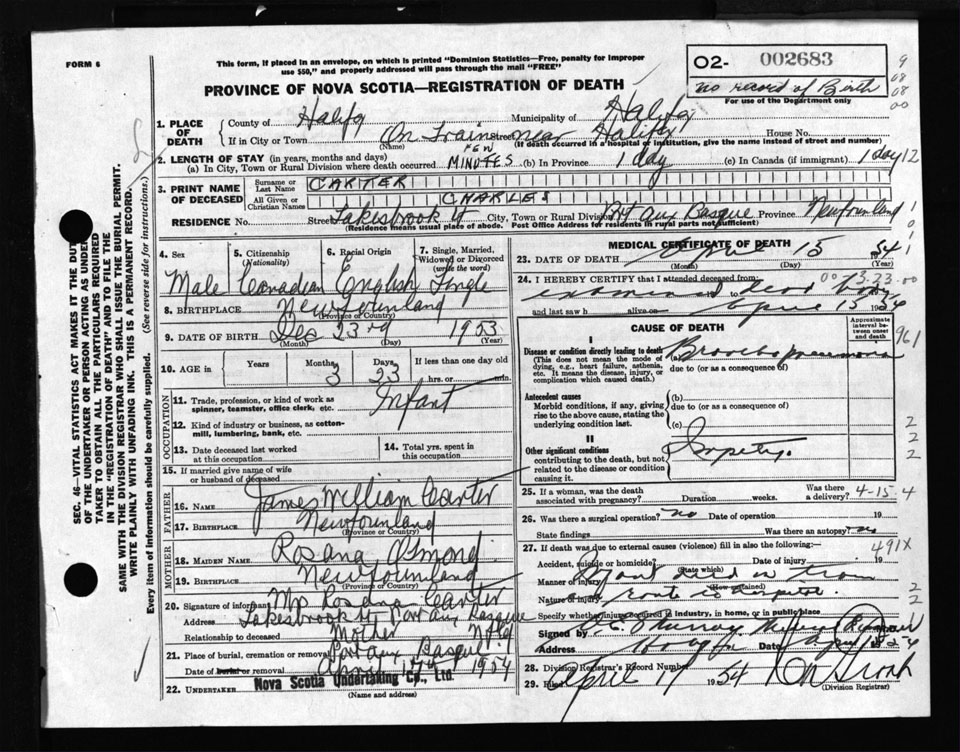 FORM 6
This form, if placed in an envelope, on which is printed "Dominion Statistics—Free, penalty for improper
use $50," and properly addressed will pass through the mail "FREE"
O2- 002683
no record of Birth
For use of the Department only
PROVINCE OF NOVA SCOTIA—REGISTRATION OF DEATH
1. PLACE OF DEATH
County of Halifax Municipality of Halifax
If in City or Town On Train Street near Halifax House No.
(Name) (If death occurred in a hospital or institution, give the name instead of street and number)
2. LENGTH OF STAY (in years, months and days)
(a) In City, Town or Rural Division where death occurred FEW MINUTES (b) In Province 1 day (c) In Canada (if immigrant) 1 day 12
3. PRINT NAME OF DECEASED
Surname or Last Name CARTER
All Given or Christian Names CHARLES
RESIDENCE No. Street City, Town or Rural Division Pt aux Basque Province Newfoundland
(Residence means usual place of abode. Post Office Address for residents in rural parts not sufficient)
4. Sex Male
5. Citizenship (Nationality) Canadian
6. Racial Origin English
7. Single, Married, Widowed or Divorced (write the word) Single
8. BIRTHPLACE Newfoundland
(Province or Country)
9. DATE OF BIRTH Dec 23rd 1953
(Month) (Day) (Year)
10. AGE in Years Months 3 Days 23 If less than one day old hrs. or min.
OCCUPATION
11. Trade, profession, or kind of work as spinner, teamster, office clerk, etc. Infant
12. Kind of industry or business, as cotton-mill, lumbering, bank, etc.
13. Date deceased last worked at this occupation
14. Total yrs. spent in this occupation
15. If married give name of wife or husband of deceased
FATHER
16. NAME James William Carter
17. BIRTHPLACE Newfoundland
(Province or Country)
MOTHER
18. MAIDEN NAME Rosana Osmond
19. BIRTHPLACE Newfoundland
(Province or Country)
20. Signature of informant Mrs Rosana Carter
Address Port aux Basque
Relationship to deceased Mother Nfld
21. Place of burial, cremation or removal Port aux Basque
Date of burial or removal April 17th 1954
22. UNDERTAKER Nova Scotia Undertaking Co., Ltd.
(Name and address)
MEDICAL CERTIFICATE OF DEATH
23. DATE OF DEATH 15 1954
(Month) (Day) (Year)
24. I HEREBY CERTIFY that I attended deceased from:
examined dead body
and last saw h alive on April 15 1954
CAUSE OF DEATH
Approximate interval between onset and death
I
Disease or condition directly leading to death
(This does not mean the mode of dying, e.g., heart failure, asthenia, etc. It means the disease, injury, or complication which caused death.)
(a) Bronchopneumonia
due to (or as a consequence of)
Antecedent causes
Morbid conditions, if any, giving rise to the above cause, stating the underlying condition last.
(b)
due to (or as a consequence of)
(c)
II
Other significant conditions
contributing to the death, but not related to the disease or condition causing it.
Impetigo
25. If a woman, was the death associated with pregnancy? Duration weeks. Was there a delivery? 4-15-4
26. Was there a surgical operation? no Date of operation 19
State findings Was there an autopsy? no
27. If death was due to external causes (violence) fill in also the following:— 491X
Accident, suicide or homicide? Date of injury 19
(State which)
Manner of injury died on train
(How sustained)
Nature of injury en route to hospital.
Specify whether injury occurred in industry, in home, or in public place
Signed by Murray Medical
Address Date
28. Division Registrar's Record Number
29. Filed April 17 1954
(Division Registrar)
SEC. 46—VITAL STATISTICS ACT MAKES IT THE DUTY
OF THE UNDERTAKER OR PERSON ACTING AS UNDERTAKER
TO OBTAIN ALL THE PARTICULARS REQUIRED
IN THE "REGISTRATION OF DEATH" AND TO FILE THE
SAME WITH THE DIVISION REGISTRAR WHO SHALL ISSUE THE BURIAL PERMIT.
WRITE PLAINLY WITH UNFADING INK. THIS IS A PERMANENT RECORD.
Every item of information should be carefully supplied. (See reverse side for instructions.)